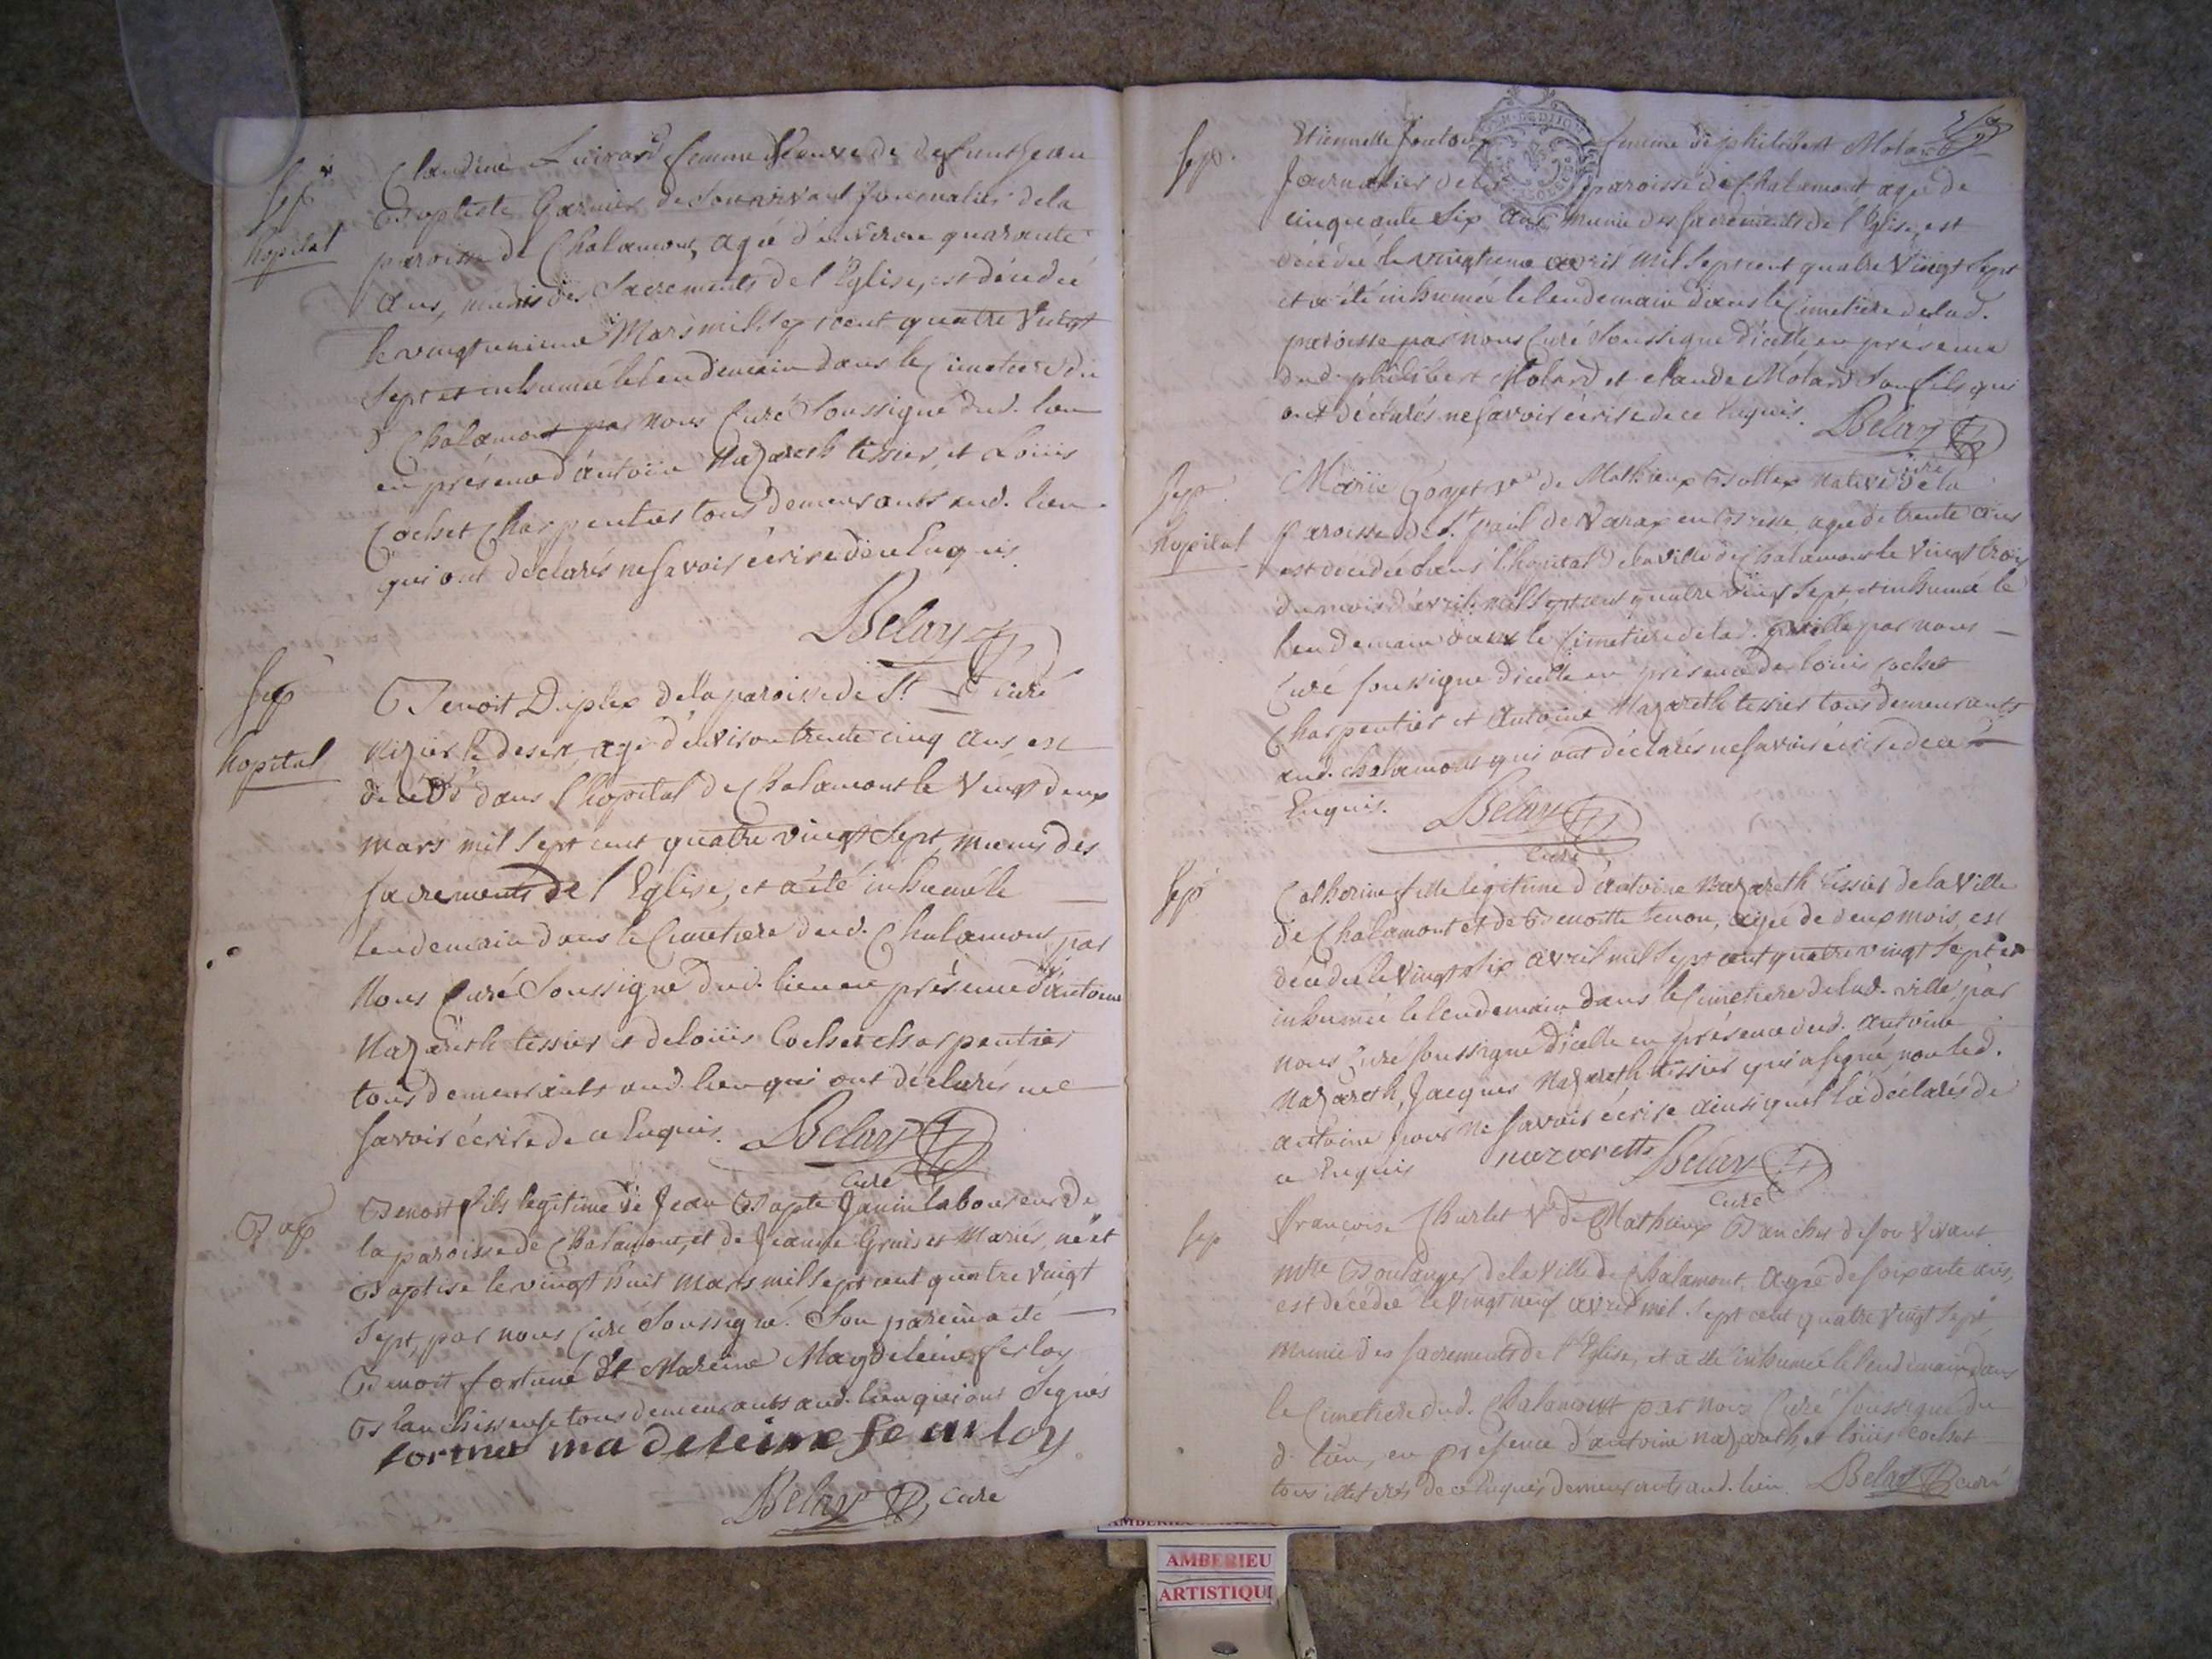 Sep.
hopital
Claudine Luivard femme Veuve de defunt Jean
Baptiste Garnier de son vivant Journalier de la
paroisse de Chalamont, agée d'environ quarante
ans, munis des Sacrements de l'Eglise, est décédée
le vingtunieme Mars mil sept cent quatre vingt
Sept et inhumée le lendemain dans le Cimetiere du
d. Chalamont par nous Curé Soussigné dud. lieu
en présence d'antoine Nazareth tissier, et Louis
Cochet Charpentier tous demeurants aud. lieu
qui ont déclarés ne savoir écrire de ce Enquis.
Belay
curé
Sep
hopital
Benoit Duplex de la paroisse de St
Nizier le desert, agé d'environ trente cinq ans est
décédé dans l'hopital de Chalamont le Vingt deux
mars mil sept cent quatre vingt Sept, munis des
sacrements de l'Eglise, et a été inhumé le
lendemain dans le Cimetiere dud. Chalamont par
Nous Curé Soussigné dud. lieu en présence d'antoine
Nazareth tissier et de loüis Cochet charpentier
tous demeurants aud. lieu qui ont déclarés ne
savoir écrire de ce Enquis. Belay
Curé
Bap
Benoit fils legitime de Jean Bapte Janin laboureur de
la paroisse de Chalamont, et de Jeanne Mariés, né et
Baptisé le vingt huit Mars mil sept cent quatre vingt
Sept, par nous Curé Soussigné. Son parein a été
Benoit fortuné et Mareine Magdeleine ferloy
Blanchisseuse tous demeurants aud. lieu qui ont Signés
fortuné madeleine fearloy
Belay curé
Sep.
Etiennette femme de philibert Molard
Journalier de la paroisse de Chalamont agée de
cinquante Six ans munie des Sacrements de l'Eglise, est
décédée le vingtieme avril mil Sept cent quatre Vingt Sept
et a été inhumée le lendemain dans le Cimetiere de lad.
paroisse par nous Curé Soussigné d'icelle en présence
dud. philibert Molard et claude Molard Son fils qui
ont déclarés ne Savoir écrire de ce Enquis. Belay
curé
Sep.
hopital
Marie Goyet ve de Mathieux Bollex Native de la
Paroisse de St. paul de Varax en Bresse, agée de trente ans
est décédée dans l'hopital de la ville de Chalamont le Vingt trois
du mois d'avril mil Sept cent quatre Vingt Sept et inhumé le
lendemain dans le Cimetiere de lad. ville par nous
Curé soussigné d'icelle en présence de louis Cochet
Charpentier et Antoine Nazareth tissier tous demeurants
aud. chalamont qui ont déclarés ne savoir écrire de ce
Enquis. Belay
curé
Sep
Catherine fille legitime d'Antoine Nazareth tissier de la Ville
de Chalamont et de Benoitte tenon, agée de deux mois, est
décédée le Vingt Six avril mil Sept cent quatre vingt Sept et
inhumée le lendemain dans le Cimetiere de lad. ville, par
nous Curé soussigné d'icelle en présence dud. antoine
Nazareth, Jacques Nazareth tissier qui a signé, non led.
antoine pour ne savoir écrire ainsi qu'il l'a déclarés de
ce Enquis nazarette Belay
Curé
Sep
Francoise Churlet Ve de Mathieux Bancher de son Vivant
Mtre Boulanger de la Ville de Chalamont, agée de soixante ans,
est décédée le vingt neuf avril mil Sept cent quatre Vingt Sept
munie des sacrements de l'Eglise, et a été inhumée le lendemain dans
le Cimetiere dud. Chalamont par nous Curé soussigné du
d. lieu, en présence d'antoine nazareth et loüis cochet
tous illetérés de ce Enquis demeurants aud. lieu. Belay curé
AMBERIEU
ARTISTIQU